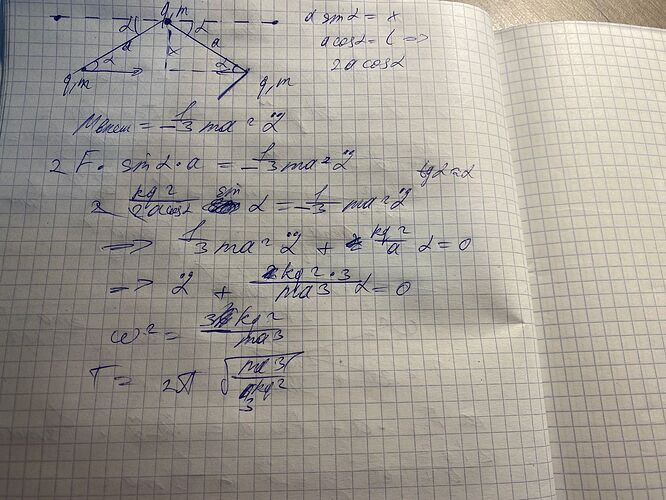 q,m
a sinα = x
α
α
a
a
a cosα = l =>
x
α
α
2a cosα
q,m
q,m
Mвнеш = -1/3 ma² α̈
2 F · sinα·a = -1/3 ma² α̈
tgα≈α
2 kq²/2acosα sin α = -1/3 ma² α̈
=> 1/3 ma² α̈ + kq²/a α = 0
=> α̈ + kq²·3/ma3 α = 0
ω² = 3kq²/ma3
T = 2π √ma3/3kq²